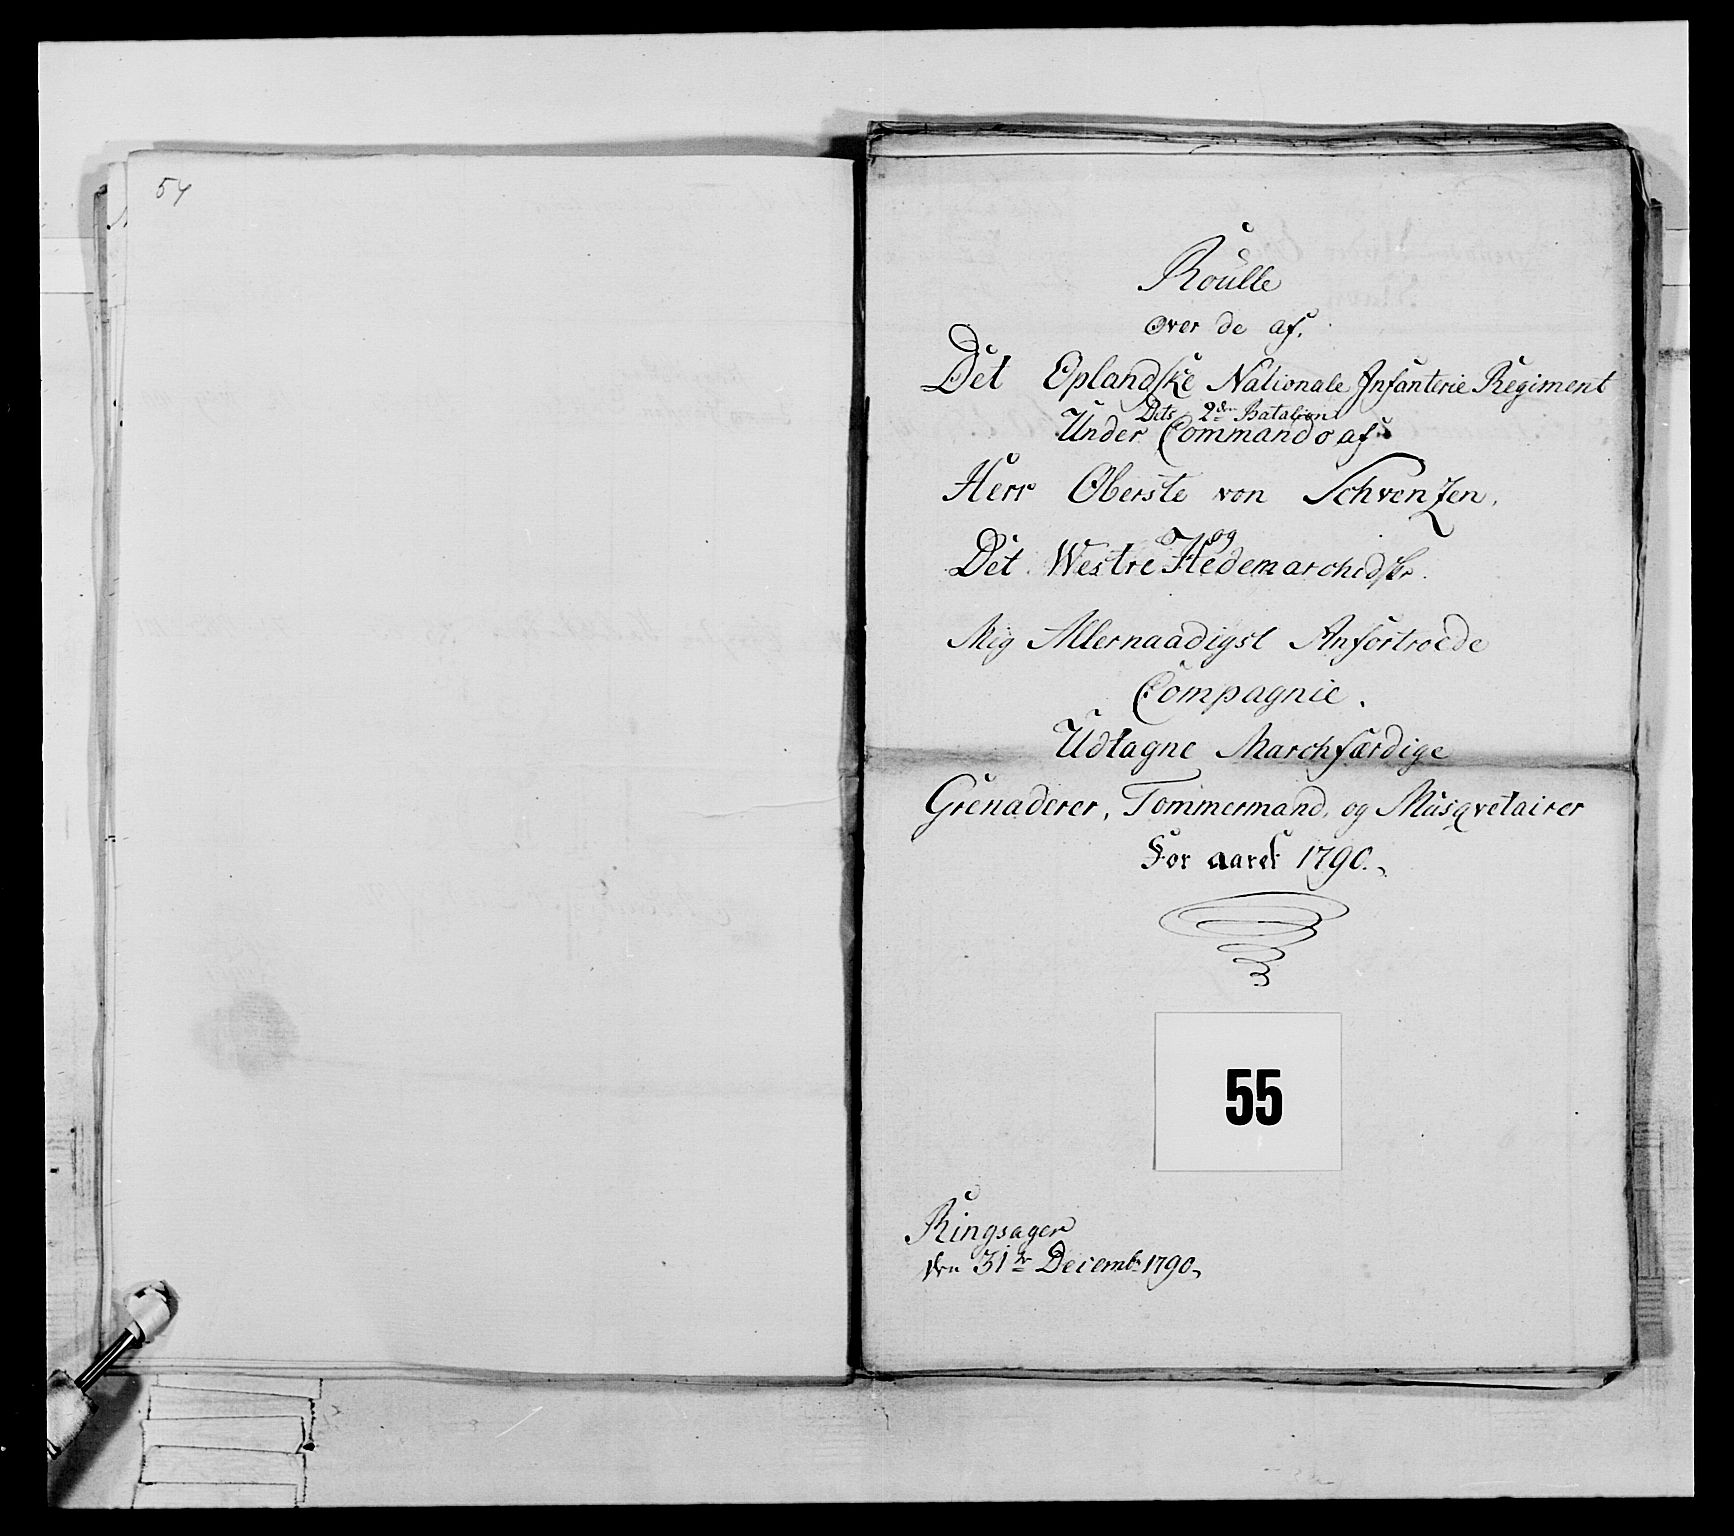 54
Roulle
over de af.
Det Oplandske Nationale Infanterie Regiment
Dets 2den Batalion
Under Commando af
Herr Oberste von Schvenzen.
og
Det Westre Hedemarchedske
Mig Allernaadigst Anfortroede
Compagnie.
Udtagne Marchfærdige
Grenaderer, Tommermand, og Musqvetairer
For aaret 1790.
55
Ringsager
den 31te Decembr 1790